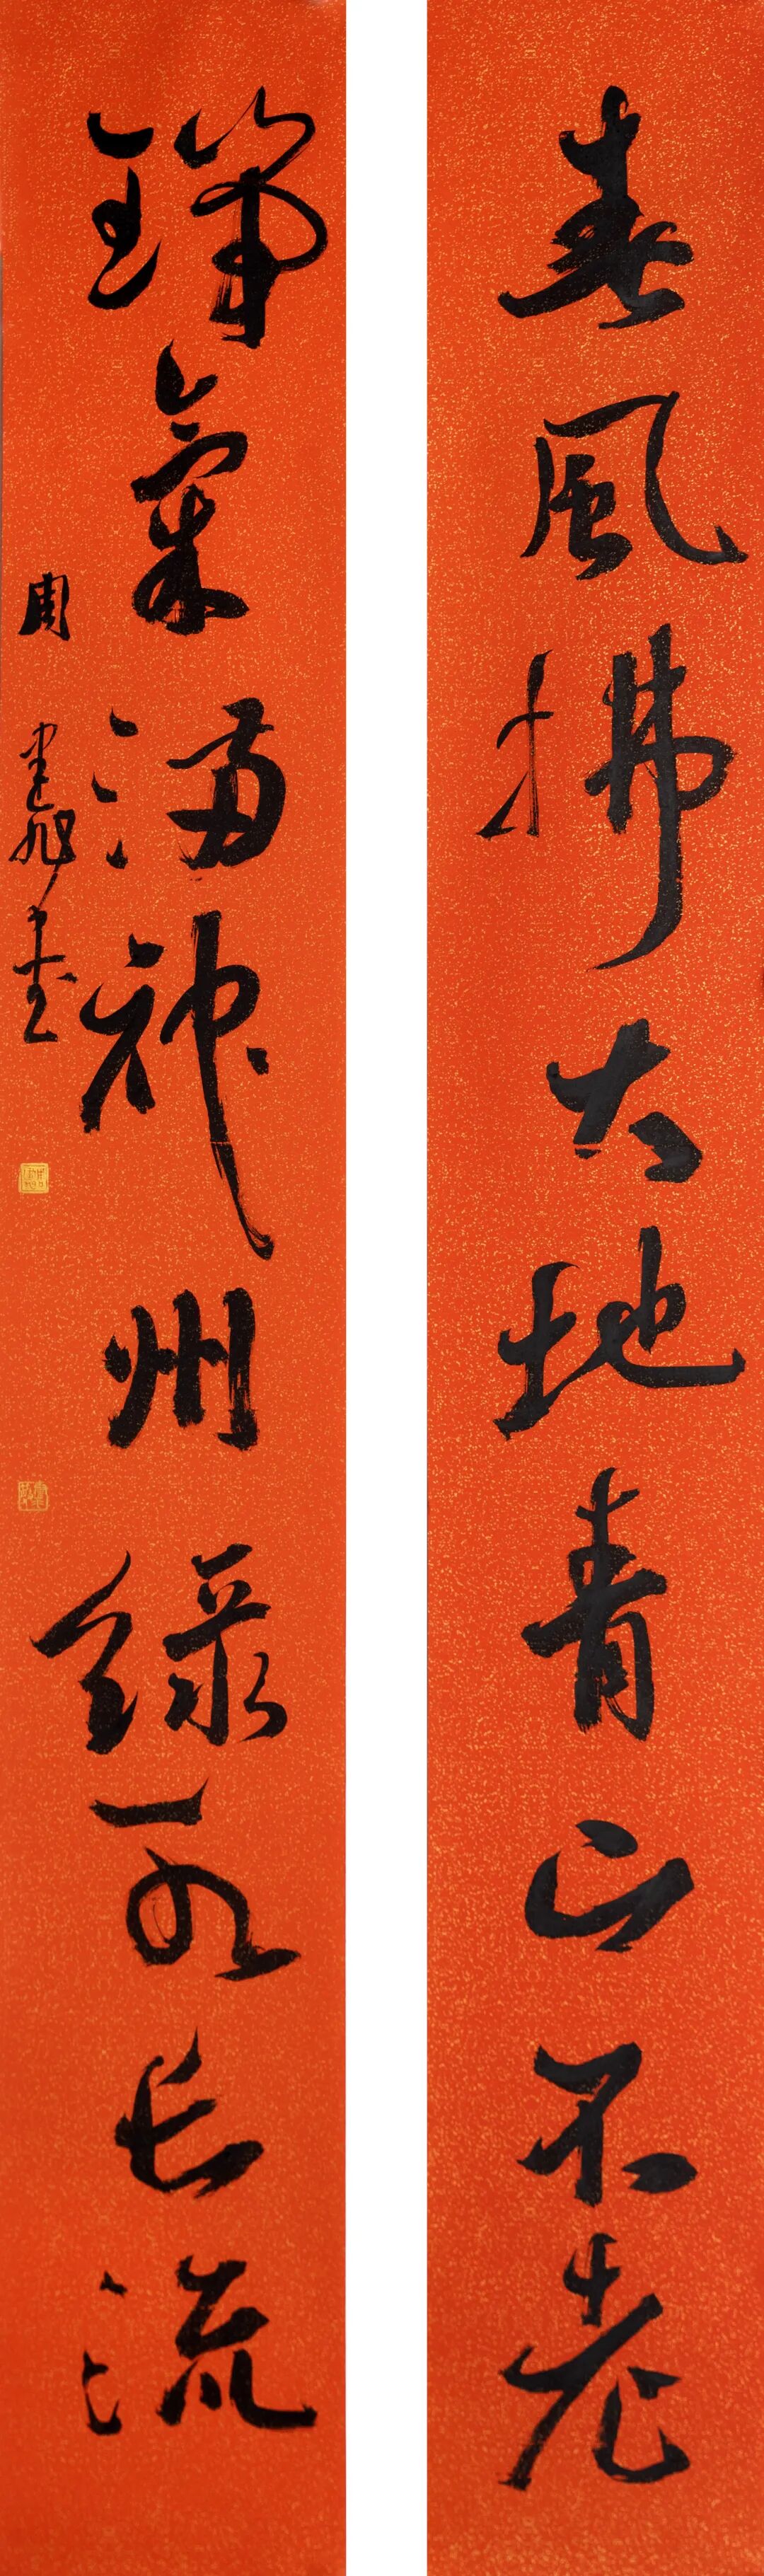 春風拂大地青山不老
瑞氣滿神州綠水長流
周建旭書